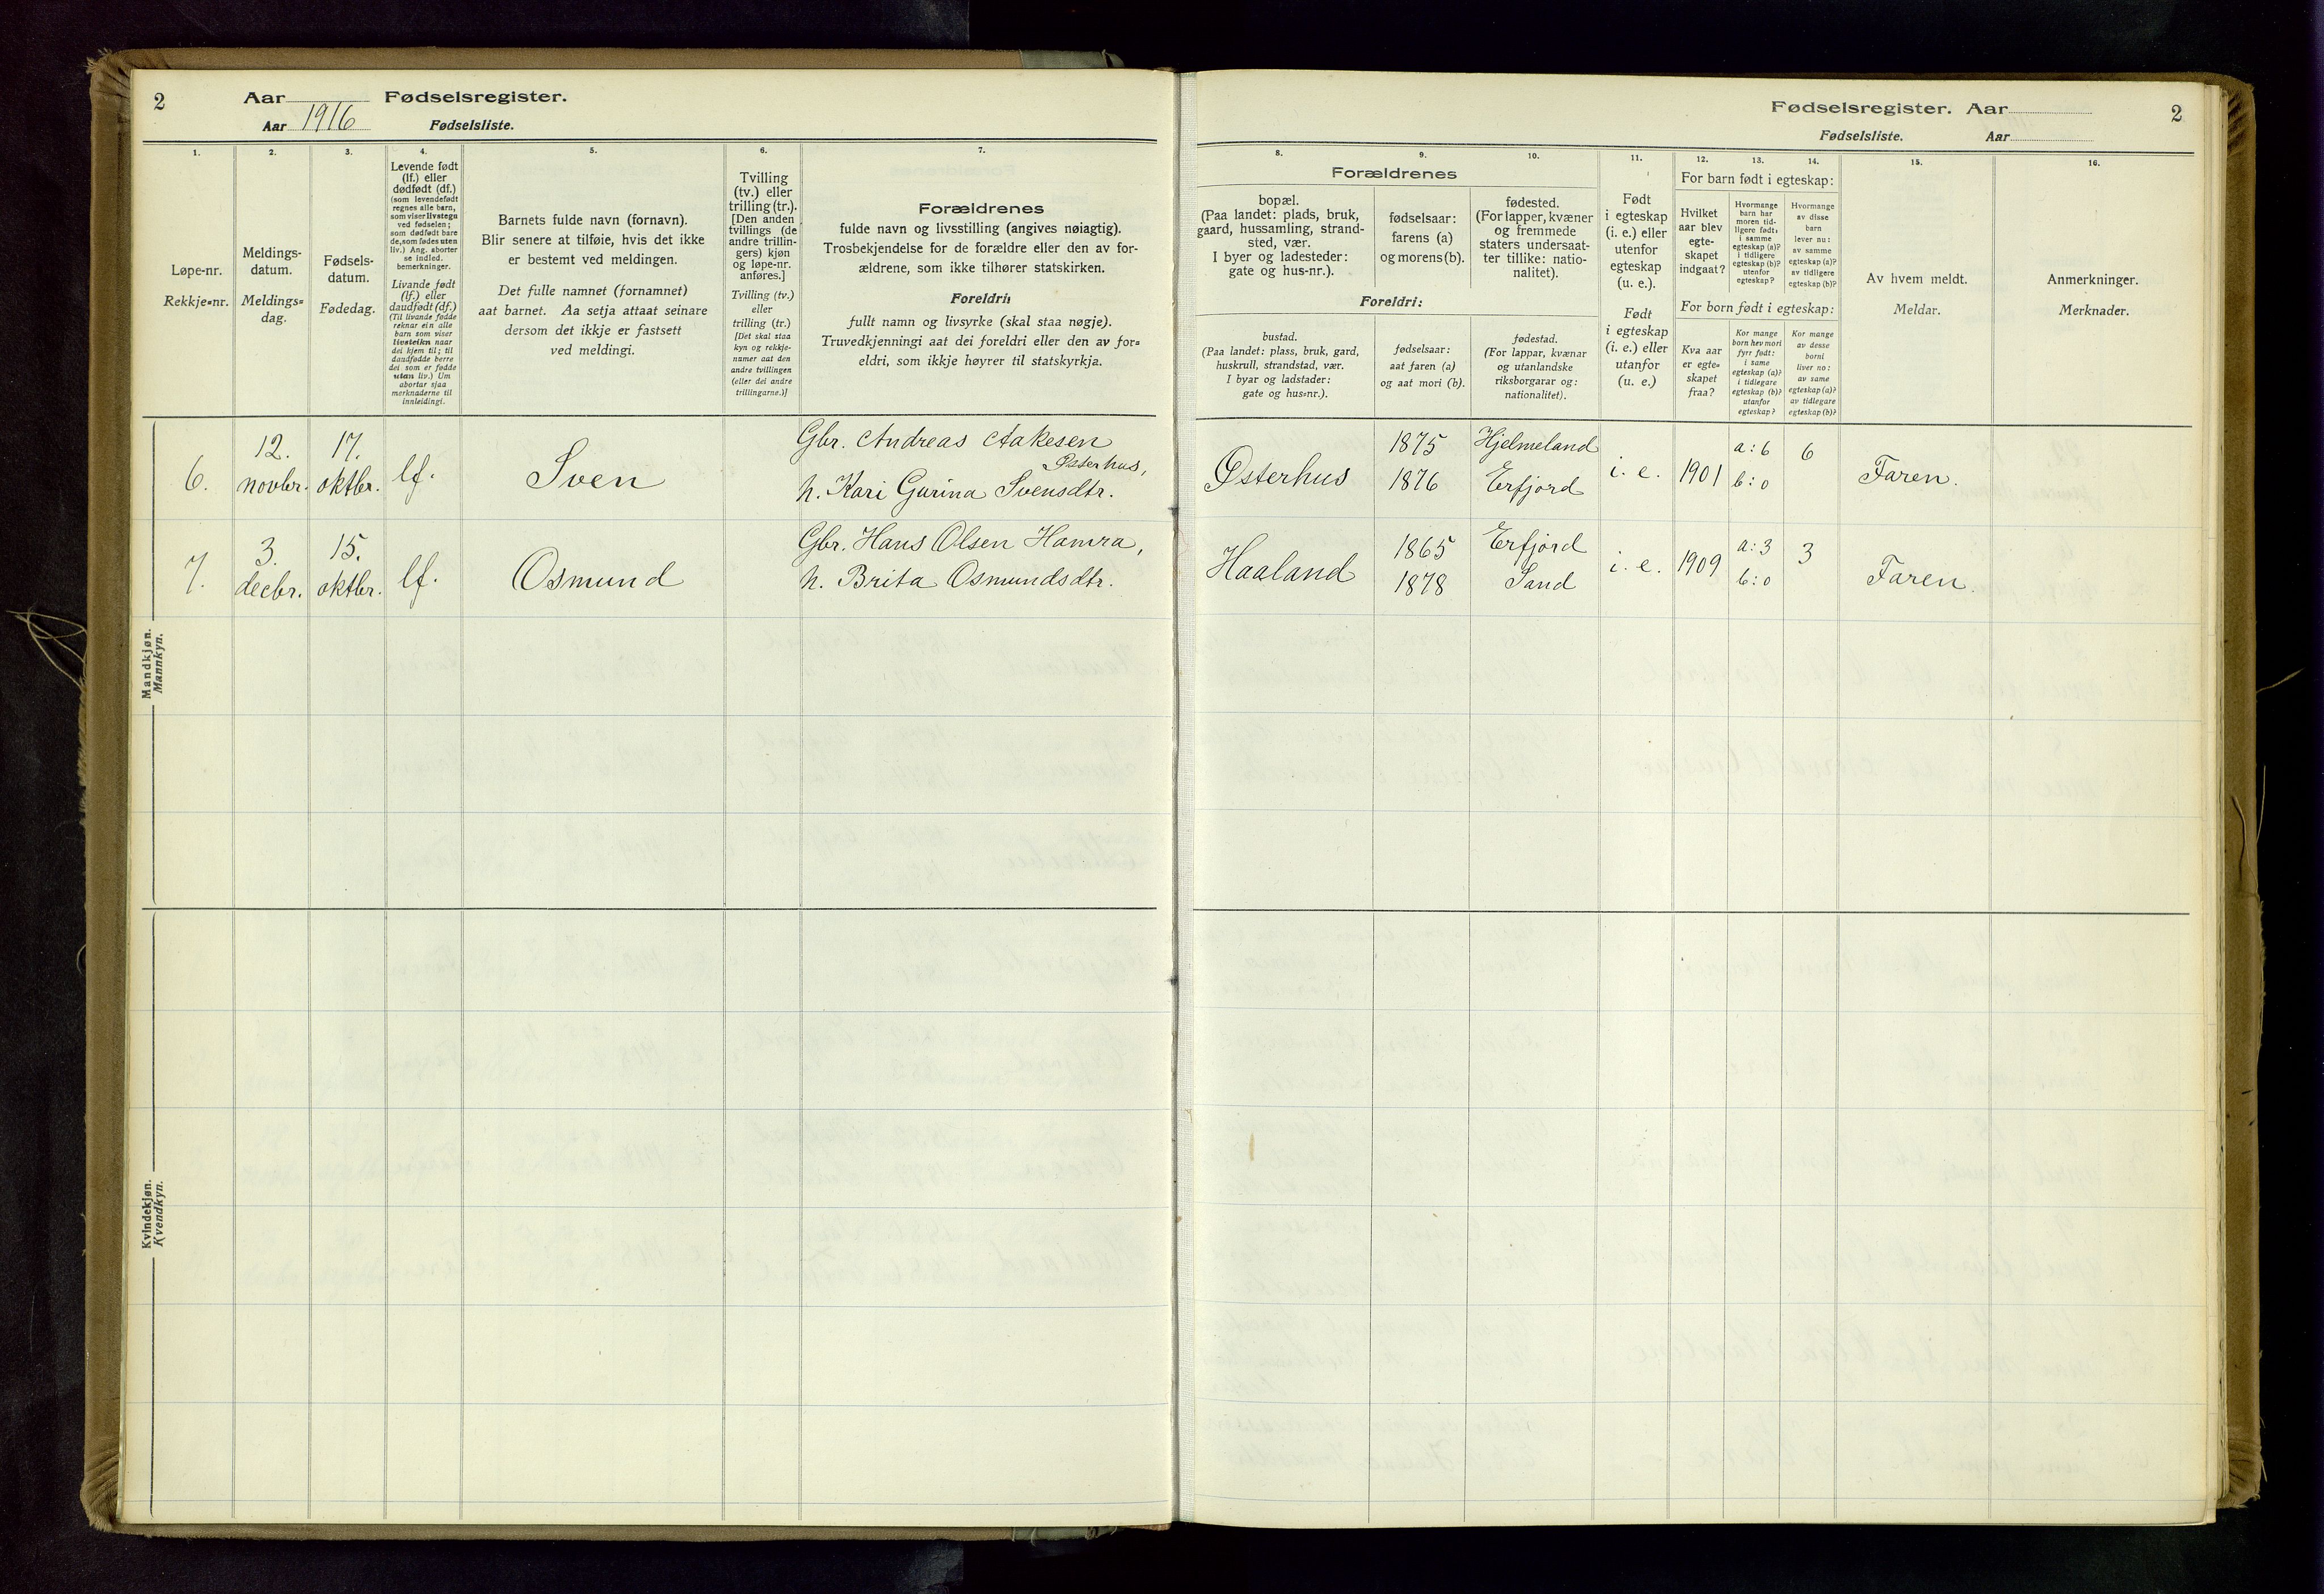 2
Aar
Fødselsregister.
Aar 1916
Fødselsliste.
1.
Løpe-nr.
Rekkje-nr.
2.
Meldings-
datum.
Meldings-
dag.
3.
Fødsels-
datum.
Fødedag.
4.
Levende født
(lf.) eller
dødfødt (df.)
(som levendefødt
regnes alle barn,
som viser livstegn
ved fødselen;
som dødfødt bare
de, som fødes uten
liv.) Ang. aborter
se indled.
bemerkninger.
Livande født
(lf.) eller
daudfødt (df.)
(Til livande fødde
reknar ein alle
barn som viser
livsteikn naar
dei kjem til; til
daudfødde berre
dei som er fødde
utan liv.) Um
abortar sjaa
merknaderne til
innleidingi.
5.
Barnets fulde navn (fornavn).
Blir senere at tilføie, hvis det ikke
er bestemt ved meldingen.
Det fulle namnet (fornamnet)
aat barnet. Aa setja attaat seinare
dersom det ikkje er fastsett
ved meldingi.
6.
Tvilling
(tv.) eller
trilling (tr.).
[Den anden
tvillings (de
andre trillin-
gers) kjøn
og løpe-nr.
anføres.]
Tvilling (tv.)
eller
trilling (tr.)
[Det skal staa
kyn og rekkje-
numer aat den
andre tvillingen
(eller dei andre
trillingarne.)]
7.
Forældrenes
fulde navn og livsstilling (angives nøiagtig).
Trosbekjendelse for de forældre eller den av for-
ældrene, som ikke tilhører statskirken.
Foreldri:
fullt namn og livsyrke (skal staa nøgje).
Truvedkjenningi aat dei foreldri eller den av for-
eldri, som ikkje høyrer til statskyrkja.
Mandkjøn.
Mannkyn.
6.
12.
novbr.
17.
oktbr.
lf.
Sven
Gbr. Andreas Aakesen
Østerhus,
h. Kari Gurina Svensdtr.
7.
3.
decbr.
15.
oktbr.
lf.
Osmund
Gbr. Hans Olsen Hamra,
h. Brita Osmundsdtr.
Kvindekjøn.
Kvendkyn.
Fødselsregister. Aar
2
Fødselsliste.
Aar
8.
9.
10.
Forældrenes
bopæl.
(Paa landet: plads, bruk,
gaard, hussamling, strand-
sted, vær.
I byer og ladesteder:
gate og hus-nr.).
fødselsaar:
farens (a)
og morens (b).
fødested.
(For lapper, kvæner
og fremmede
staters undersaat-
ter tillike: natio-
nalitet).
Foreldri:
bustad.
(Paa landet: plass, bruk, gard,
huskrull, strandstad, vær.
I byar og ladstader:
gate og hus-nr.).
fødselsaar:
aat faren (a)
og aat mori (b).
fødestad.
(For lappar, kvænar
og utanlandske
riksborgarar og:
nationalitet).
11.
Født
i egteskap
(i. e.) eller
utenfor
egteskap
(u. e.).
Født
i egteskap
(i. e.) eller
utanfor
(u. e.)
12.
13.
14.
For barn født i egteskap:
Hvilket
aar blev
egte-
skapet
indgaat?
Hvormange
barn har
moren tid-
ligere født:
i samme
egteskap (a)?
i tidligere
egteskap (b)?
utenfor
egteskap?
Hvormange
av disse
barn
lever nu:
av samme
egteskap (a)?
av tidligere
egteskap (b)?
For born født i egteskap:
Kva aar
er egte-
skapet
fraa?
Kor mange
born hev mori
fyrr født:
i same
egteskap (a)?
i tidlegare
egteskap (b)?
utanfor
egteskap?
Kor mange
av desse
borni
liver no:
av same
egteskap (a)?
av tidlegare
egteskap (b)?
15.
Av hvem meldt.
Meldar.
16.
Anmerkninger.
Merknader.
Østerhus
1875
1876
Hjelmeland
Erfjord
i. e.
1901
a: 6
b: 0
6
Faren.
Haaland
1865
1878
Erfjord
Sand
i. e.
1909
a: 3
b: 0
3
Faren.